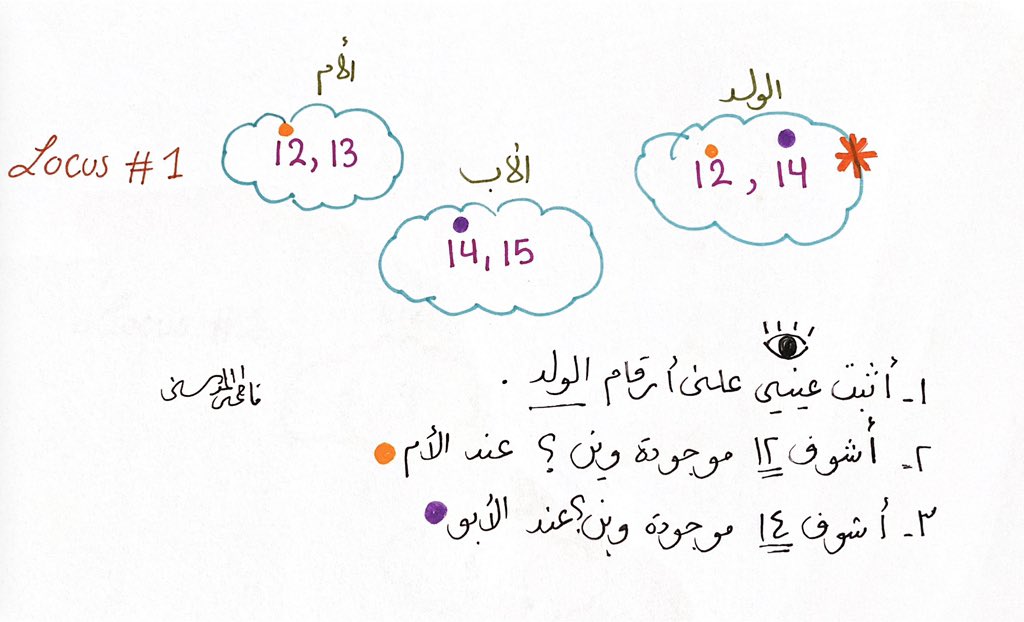 الأم
الولد
Locus #1
12, 13
12, 14
الأب
14, 15
١- أثبت عيني على أرقام الولد .
٢- أشوف ١٢ موجودة وين ؟ عند الأم
٣- أشوف ١٤ موجودة وين؟ عند الأبو